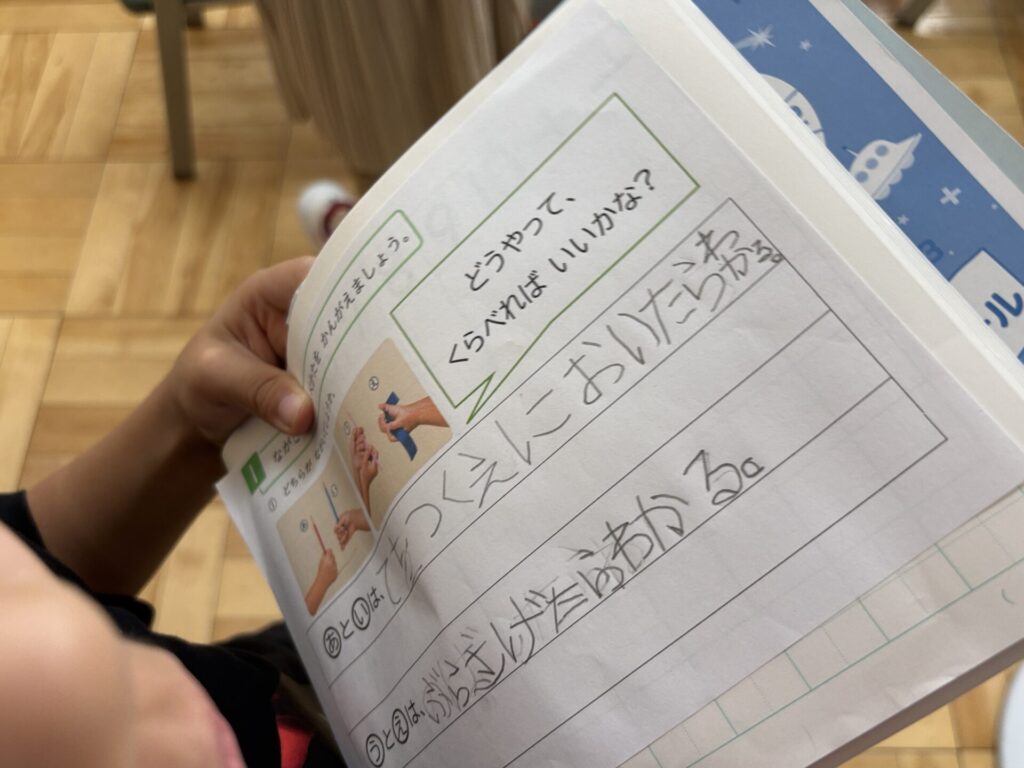 1 なが
① どちらが
かんがえましょう。
どうやって、
くらべれば いいかな?
あ い
う え
あといは、 つくえにおいたらわかる。
うとえは、 わかる。
ール